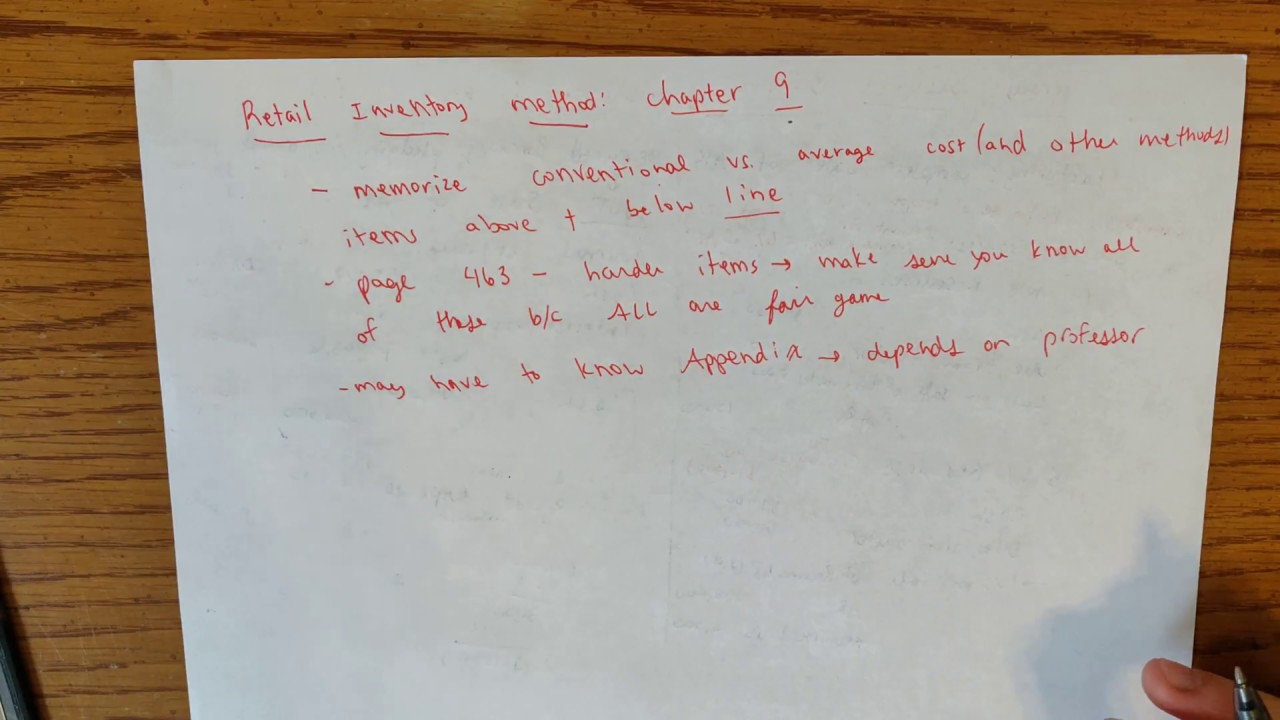 Retail Inventory method: chapter 9
- memorize conventional vs. average cost (and other methods)
items above + below line
- page 463 - harder items → make sure you know all
of these b/c ALL are fair game
- may have to know Appendix → depends on professor